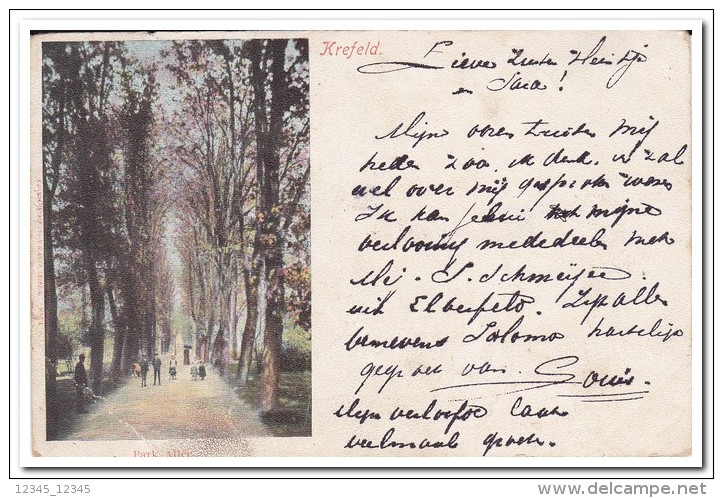 Krefeld.
Lieve zuster Heintje
en Sara!
Mijne ooren tuiten mij
heden zoo, ik denk, er zal
wel over mij gesproken wezen
Ik kan jelui mijne
verloving mededeelen met
Mej. S. Schmeijer
uit Elberfeld. Zijt allen
benevens Salomo hartelijk
gegroet van. Louis.
Mijn verloofde laat
veelmaals groeten.
Park Allee.
12345_12345
delcampe.net